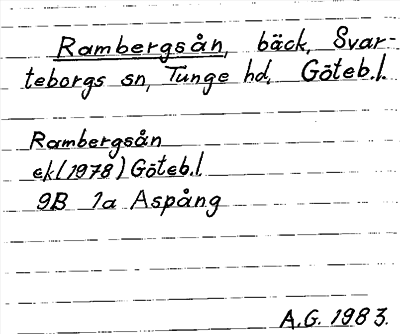 Rambergsån, bäck, Svar-
teborgs sn, Tunge hd, Göteb.l.
Rambergsån
ek(1978) Göteb.l.
9B 1a Aspång
A.G. 1983.